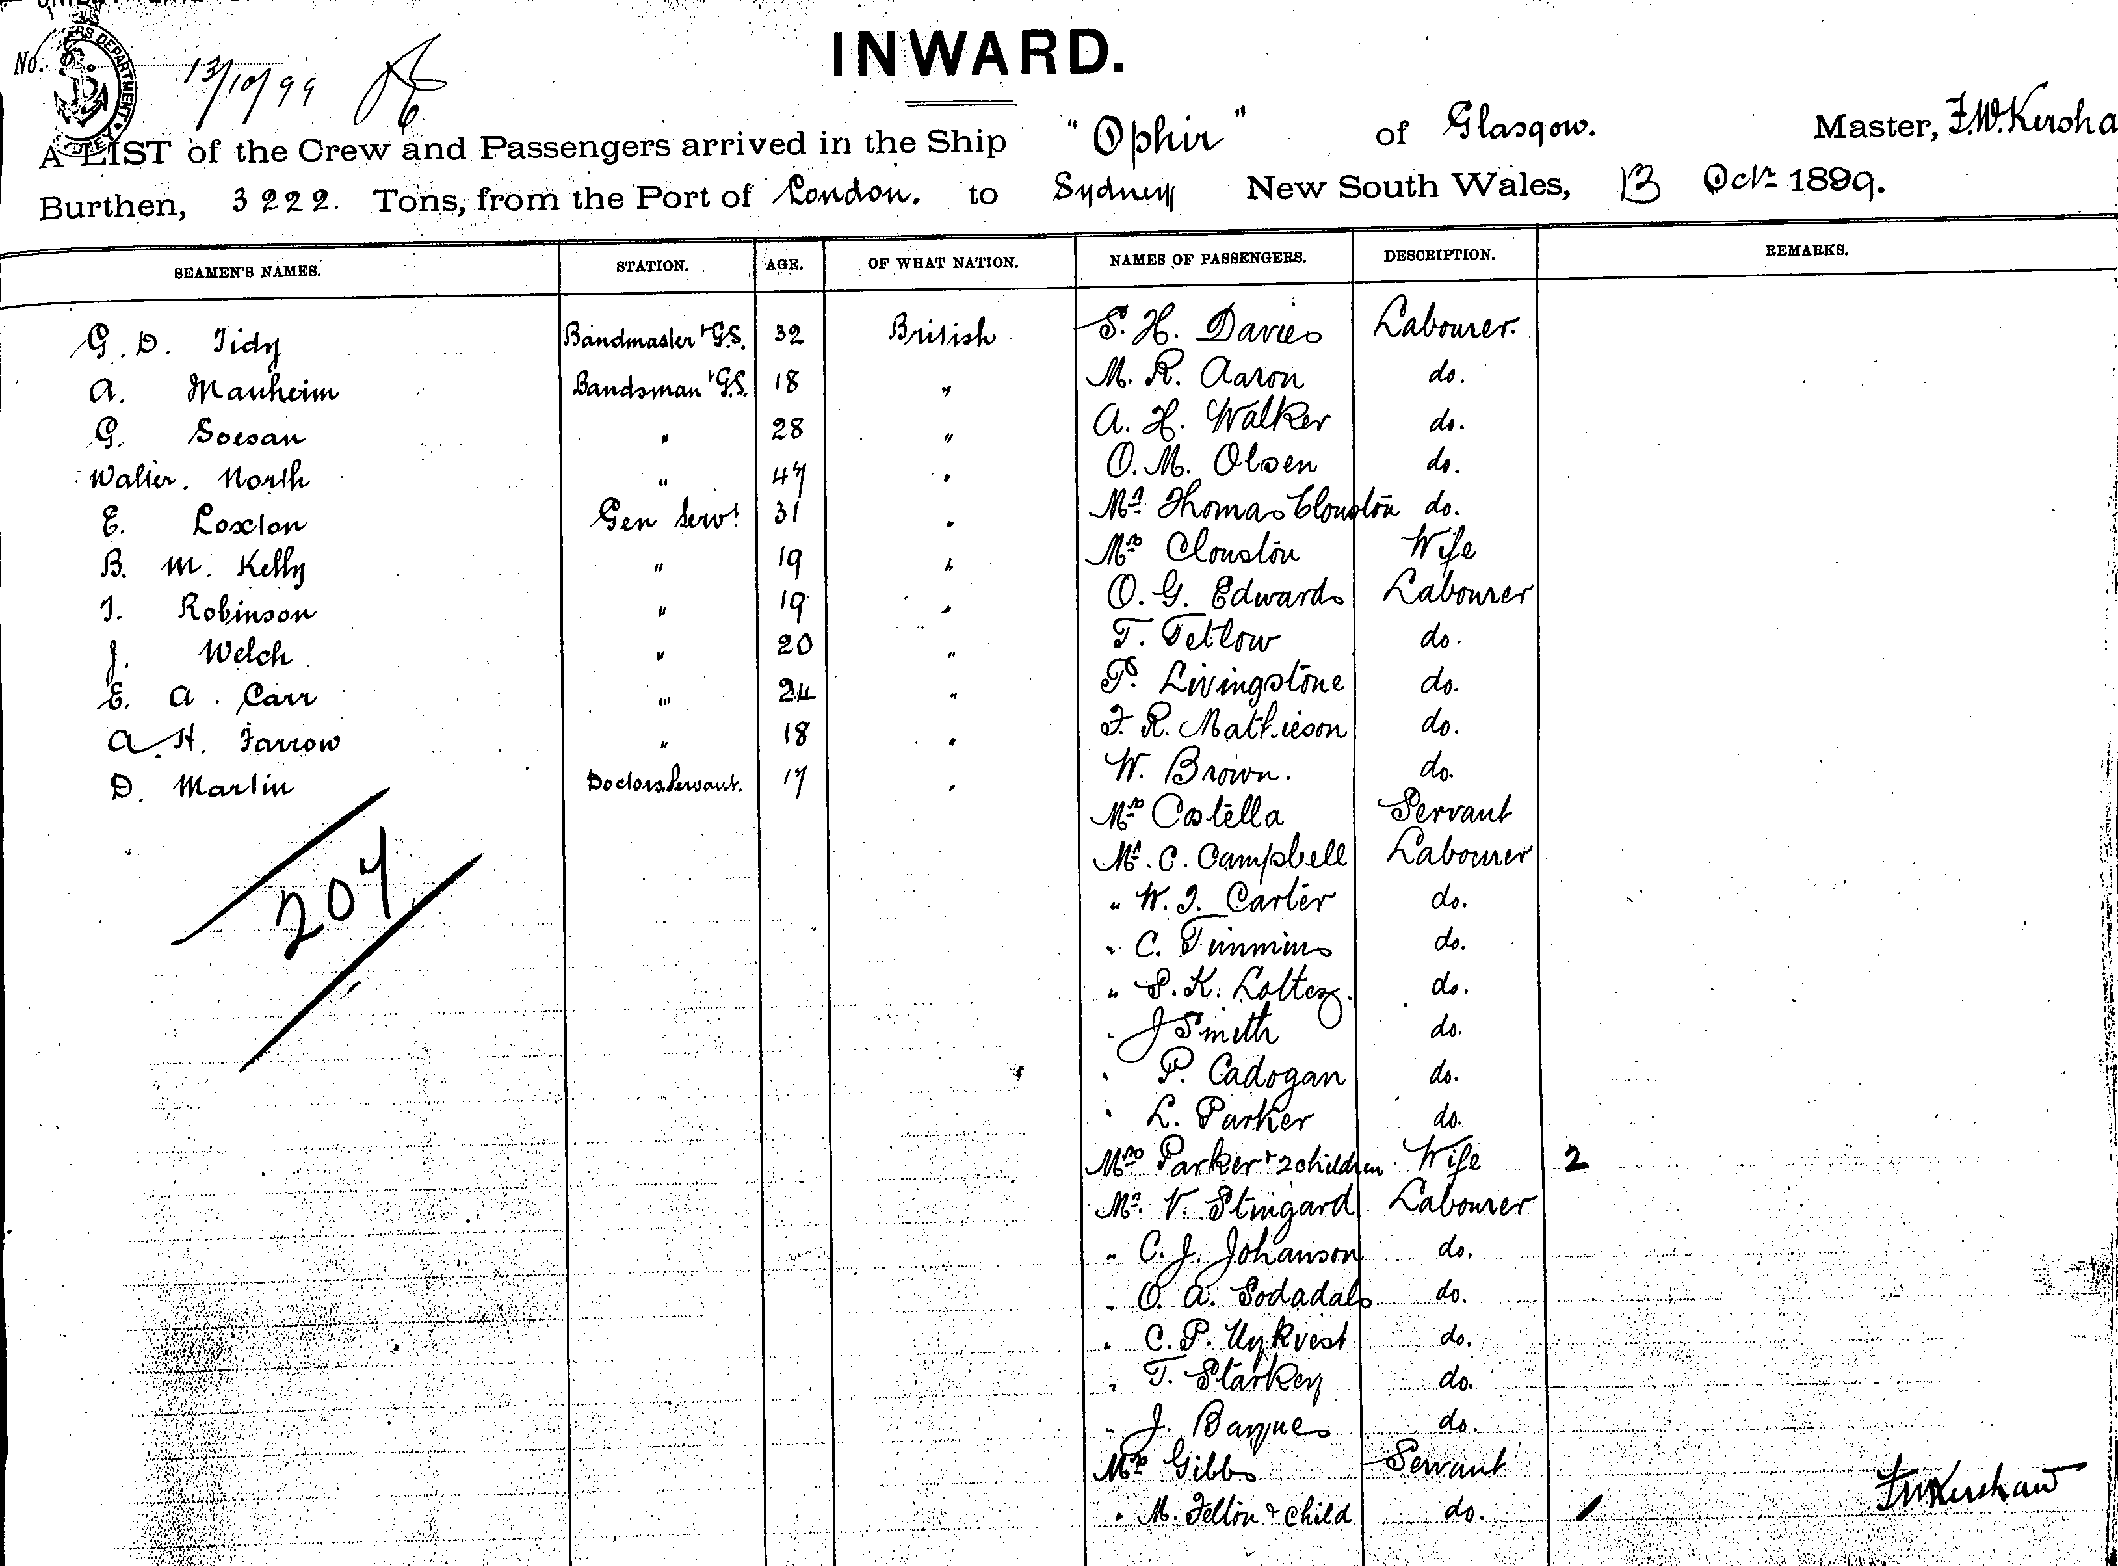 INWARD.
No.
13/10/99
A LIST of the Crew and Passengers arrived in the Ship "Ophir" of Glasgow. Master, F.W. Kersha
Burthen, 3222. Tons, from the Port of London. to Sydney New South Wales, 13 Oct 1899.
SEAMEN'S NAMES. STATION. AGE. OF WHAT NATION. NAMES OF PASSENGERS. DESCRIPTION. REMARKS.
G. D. Tidy Bandmaster + G.S. 32 British S. H. Davies Labourer.
A. Manheim Bandsman + G.S. 18 " M. R. Aaron do.
G. Soesan " 28 " A. H. Walker do.
Walter. North " 47 " O. M. Olsen do.
E. Loxton Gen Servt 31 " Mr Thomas Clouston do.
B. M. Kelly " 19 " Mrs Clouston Wife
T. Robinson " 19 " O. G. Edwards Labourer
J. Welch " 20 " T. Tetlow do.
E. A. Carr " 24 " P. Livingstone do.
A. H. Farrow " 18 " F. R. Mathieson do.
D. Martin Doctors Servant. 17 " W. Brown. do.
Mrs Costella Servant
Mr. C. Campbell Labourer
" W. J. Carter do.
" C. Timmins do.
" S. K. do.
" J Smith do.
" P. Cadogan do.
" L. Parker do.
Mrs Parker + 2 children Wife 2
Mr. V. Stingard Labourer
" C. J. Johanson do.
" O. A. Sodadals do.
" C. P. Uykvest do.
" T. Starkey do.
" J. do.
Mrs Gibbs Servant
" M. Felton + child do. 1
207
FWKershaw